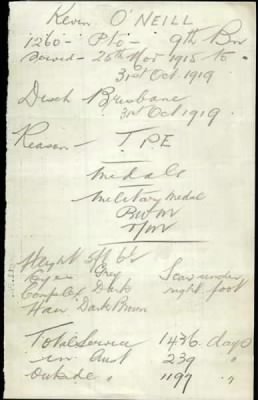 Kevin O'NEILL
1260 - Pte - 9th Bn
Served - 25th Nov 1915 to
31st Oct. 1919
Disch Brisbane
31st Oct 1919
Reason - TPE
Medals
Military Medal
BWM
VM
Height 5ft 6½
Eyes Grey Scar under
Complex Dark right foot
Hair Dark Brown
Total Service 1436 days
in Aust 239 "
Outside " 1197 "